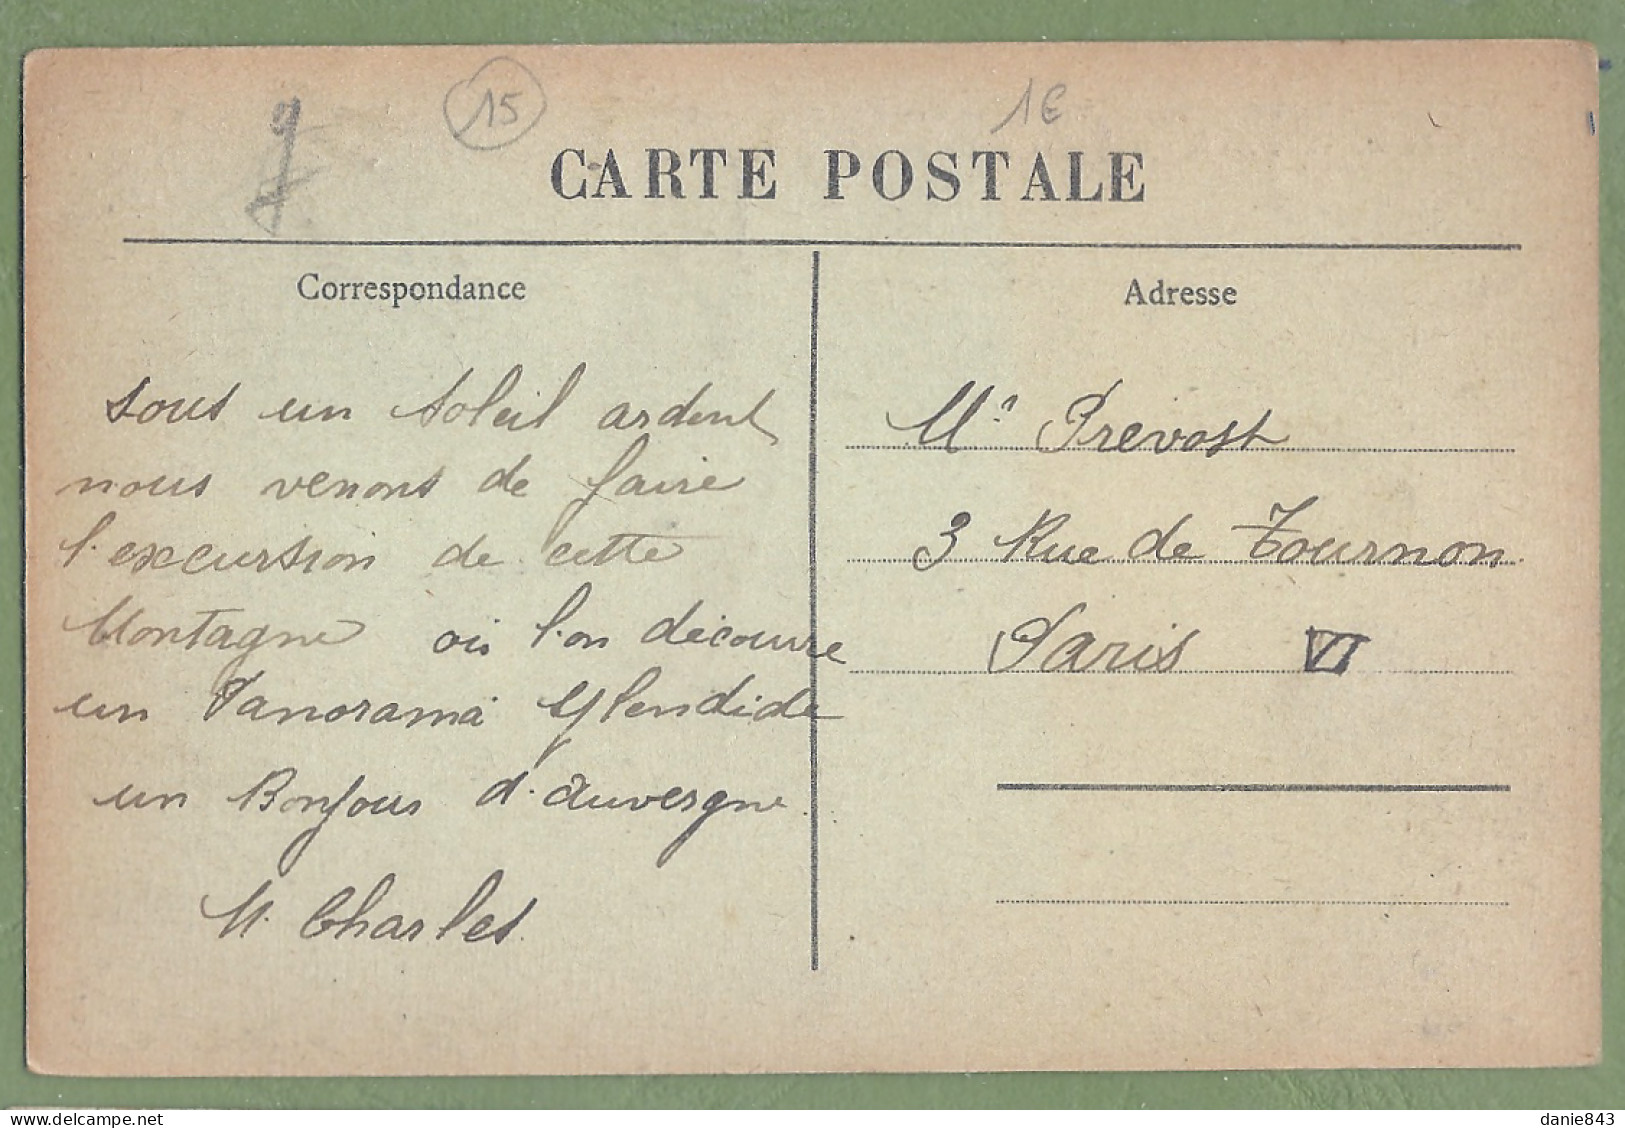 15
1€
CARTE POSTALE
Correspondance
Adresse
Sous un Soleil ardent
nous venons de faire
l'excursion de cette
Montagne où l'on découvre
un Panorama Splendide
un Bonjour d'auvergne.
M. Charles.
Mr Prevost
3 Rue de Tournon.
Paris VI
www.delcampe.net
danie843